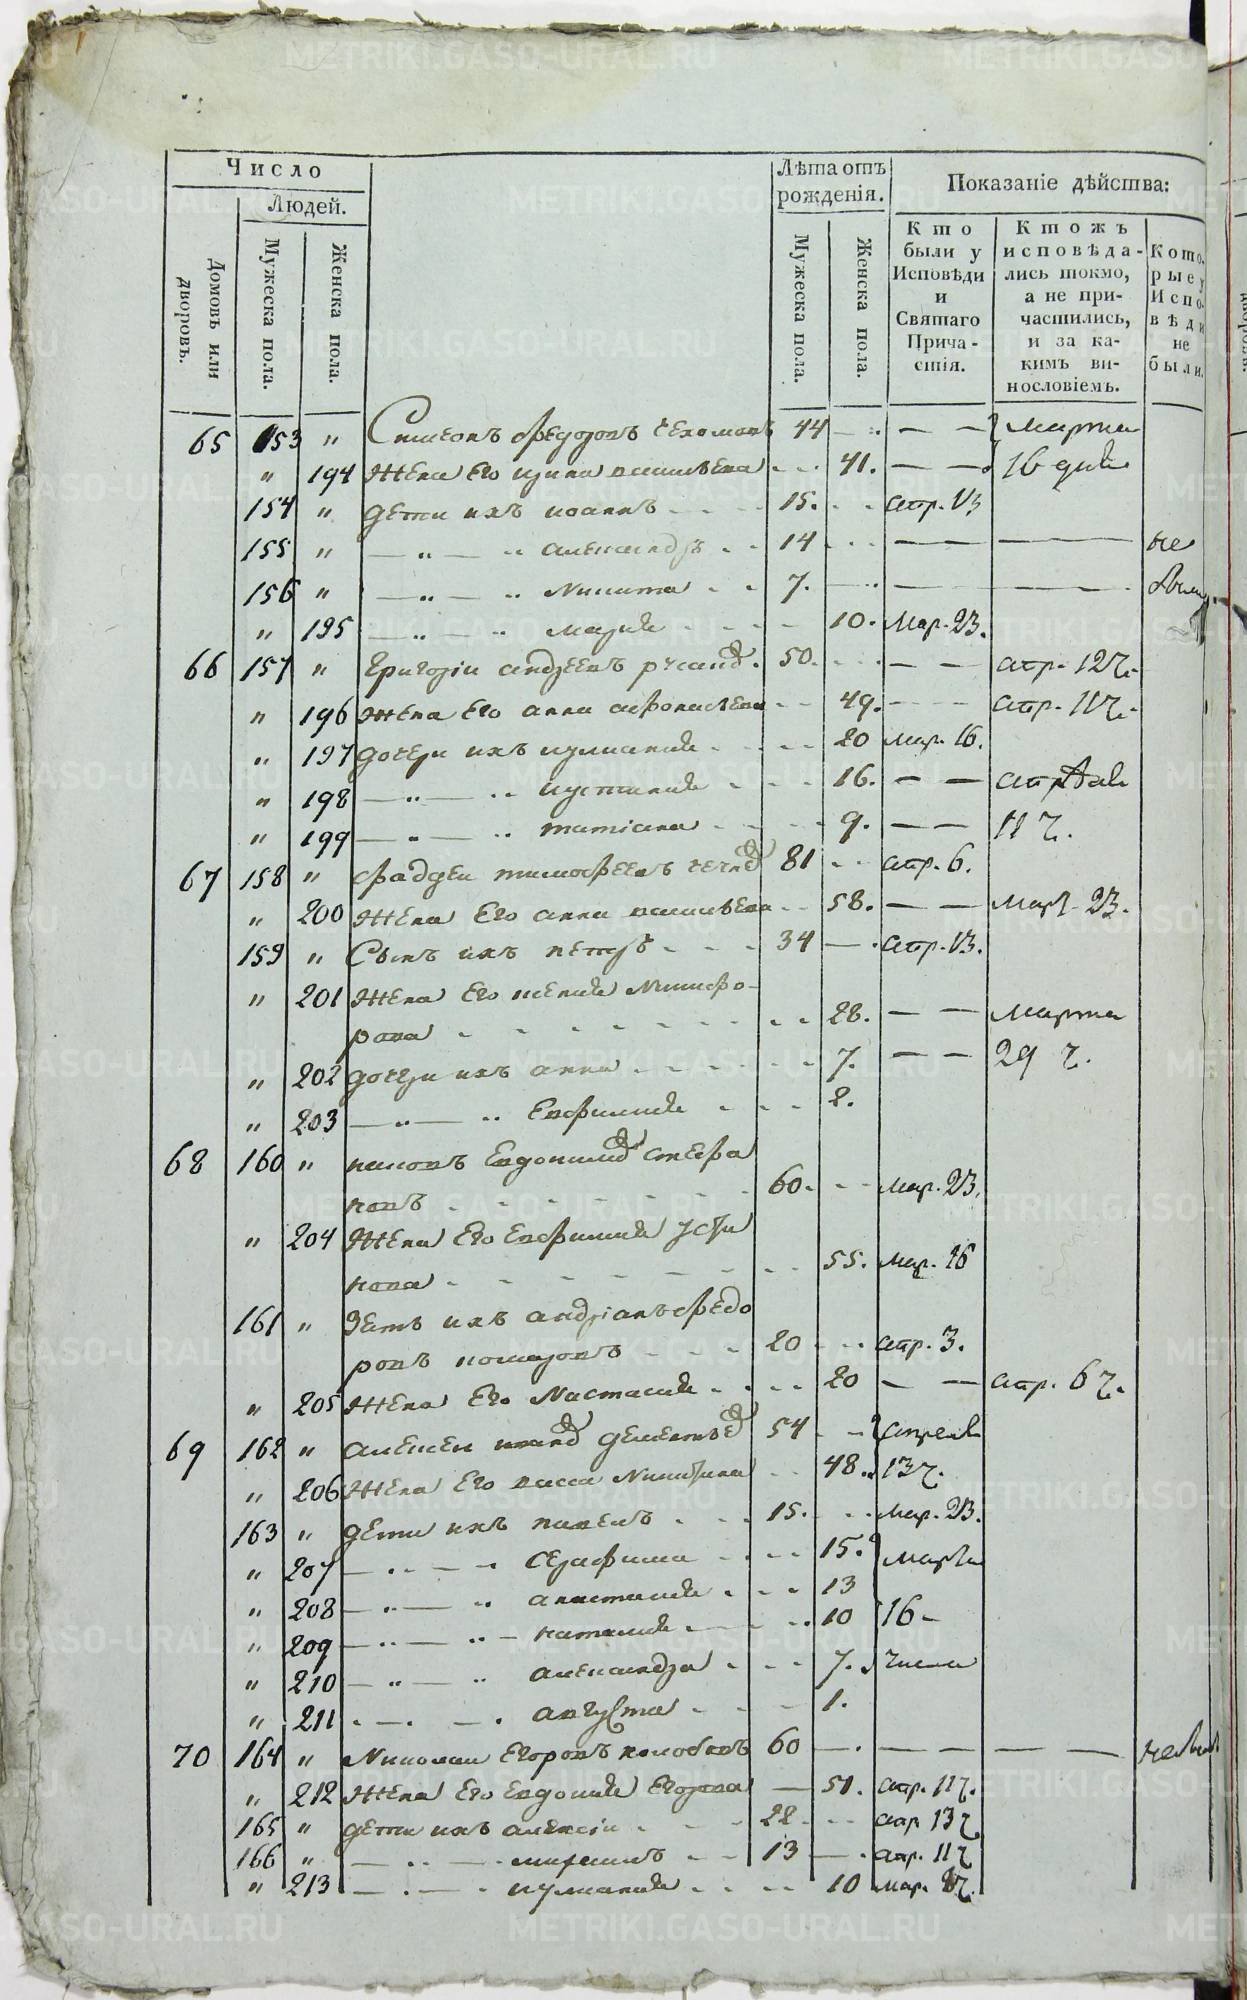 Число
Людей.
Домовъ или дворовъ.
Мужеска пола.
Женска пола.
Лѣта отъ рожденія.
Мужеска пола.
Женска пола.
Показаніе дѣйства:
Кто были у Исповѣди и Святаго Прича-стія.
Ктожъ исповѣда-лись токмо, а не при-частились, и за ка-кимъ ви-нословіемъ.
Кото-рые у Испо-вѣди не были.
65 153 " Симеонъ Федоровъ 44 — — — марта
" 194 жена Его ирина василѣева 41. — — 16 дня
154 " дети ихъ иоаннъ 15. апр. 13
155 " — " — " александръ 14 — — не
156 " — " — " Никита 7. — — были
" 195 — " — " мария 10. мар. 23.
66 157 " Григории андреевъ 50. — — апр. 12 ч.
" 196 жена Его анна афонасѣева 49. апр. 11 ч.
" 197 дочери ихъ иулиания 20 мар. 16.
" 198 — " — " иустиния 16. — — апреля
" 199 — " — " татиана 9. — — 11 ч.
67 158 " фаддеи тимофеевъ 81 апр. 6.
" 200 жена Его анна василѣева 58. — — мар. 23.
159 " Сынъ ихъ петръ 34 — апр. 13.
" 201 жена Его ксения Никифо-
рова 28. — — марта
" 202 дочери ихъ анна 7. — — 29 ч.
" 203 — " — " Евфимия 2.
68 160 " Евдокимовъ стефа
новъ 60. мар. 23.
" 204 жена Его Евфимия усти
нова 55. мар. 16
161 " Зять ихъ андрианъ федо
ровъ 20 апр. 3.
" 205 жена Его Настасия 20 — — апр. 6 ч.
69 162 " алексеи 54 апреля
" 206 жена Его васса Никитина 48. 13 ч.
163 " дети ихъ павелъ 15. мар. 23.
" 207 — " — " серафима 15. марта
" 208 — " — " анастасия 13
" 209 — " — " наталия 10 16
" 210 — " — " александра 7. числа
" 211 — " — " августа 1.
70 164 " Николаи Егоровъ 60 — — — — не были
" 212 жена Его Евдокия Егорова — 51. апр. 11 ч.
165 " дети ихъ алексии 22 апр 13 ч
166 " — " — " михаилъ 13 — апр. 11 ч
" 213 — " — " иулиания 10 мар.
METRIKI.GASO-URAL.RU